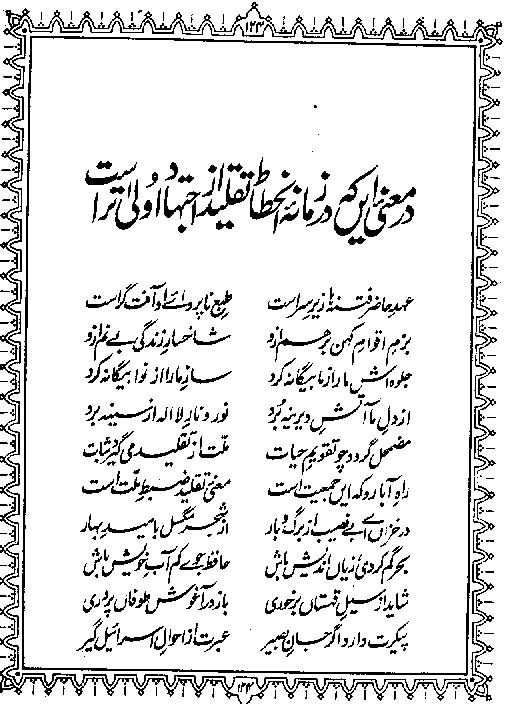 ۱۲۴
در معنی این که در زمانهٔ انحطاط تقلید از اجتهاد اولیٰ تر است
عہدِ حاضر فتنہ ہا زیرِ سر است طبعِ ناپروائے او آفت گر است
بزمِ اقوامِ کہن برہم ازو شاخسارِ زندگی بے نم ازو
جلوہ اش مارا ز ما بیگانہ کرد سازِ مارا از نوا بیگانہ کرد
از دلِ ما آتشِ دیرینہ بُرد نور و نارِ لا الہ از سینہ برد
مضمحل گردد چو تقویمِ حیات ملّت از تقلید می گیرد ثبات
راہِ آبا رو کہ این جمعیت است معنیِ تقلید ضبطِ ملّت است
در خزاں اے بے نصیب از برگ و بار از شجر مگسل بامیدِ بہار
بحر گم کردی زیاں اندیش باش حافظِ جوئے کم آبِ خویش باش
شاید از سیلِ قہستاں برخوری باز در آغوشِ طوفاں پروری
پیکرت دارد اگر جانِ بصیر عبرت از احوالِ اسرائیل گیر
۱۲۴